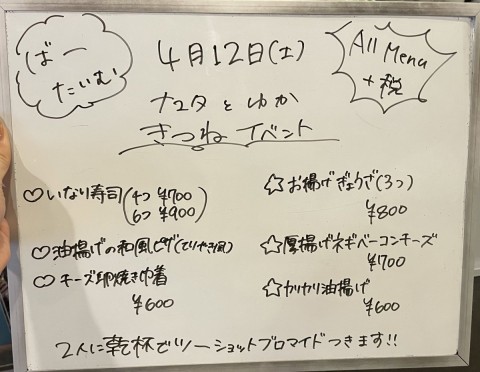 ばー
たいむ
4月12日(土)
All Menu
+税
ナユタとゆか
きつねイベント
♡いなり寿司(4つ ¥700
6つ ¥900)
♡油揚げの和風ピザ(てりやき風)
♡チーズ卵焼き巾着
¥600
☆お揚げぎょうざ(3つ)
¥800
☆厚揚げネギベーコンチーズ
¥700
☆カリカリ油揚げ
¥600
2人に乾杯でツーショットブロマイドつきます!!